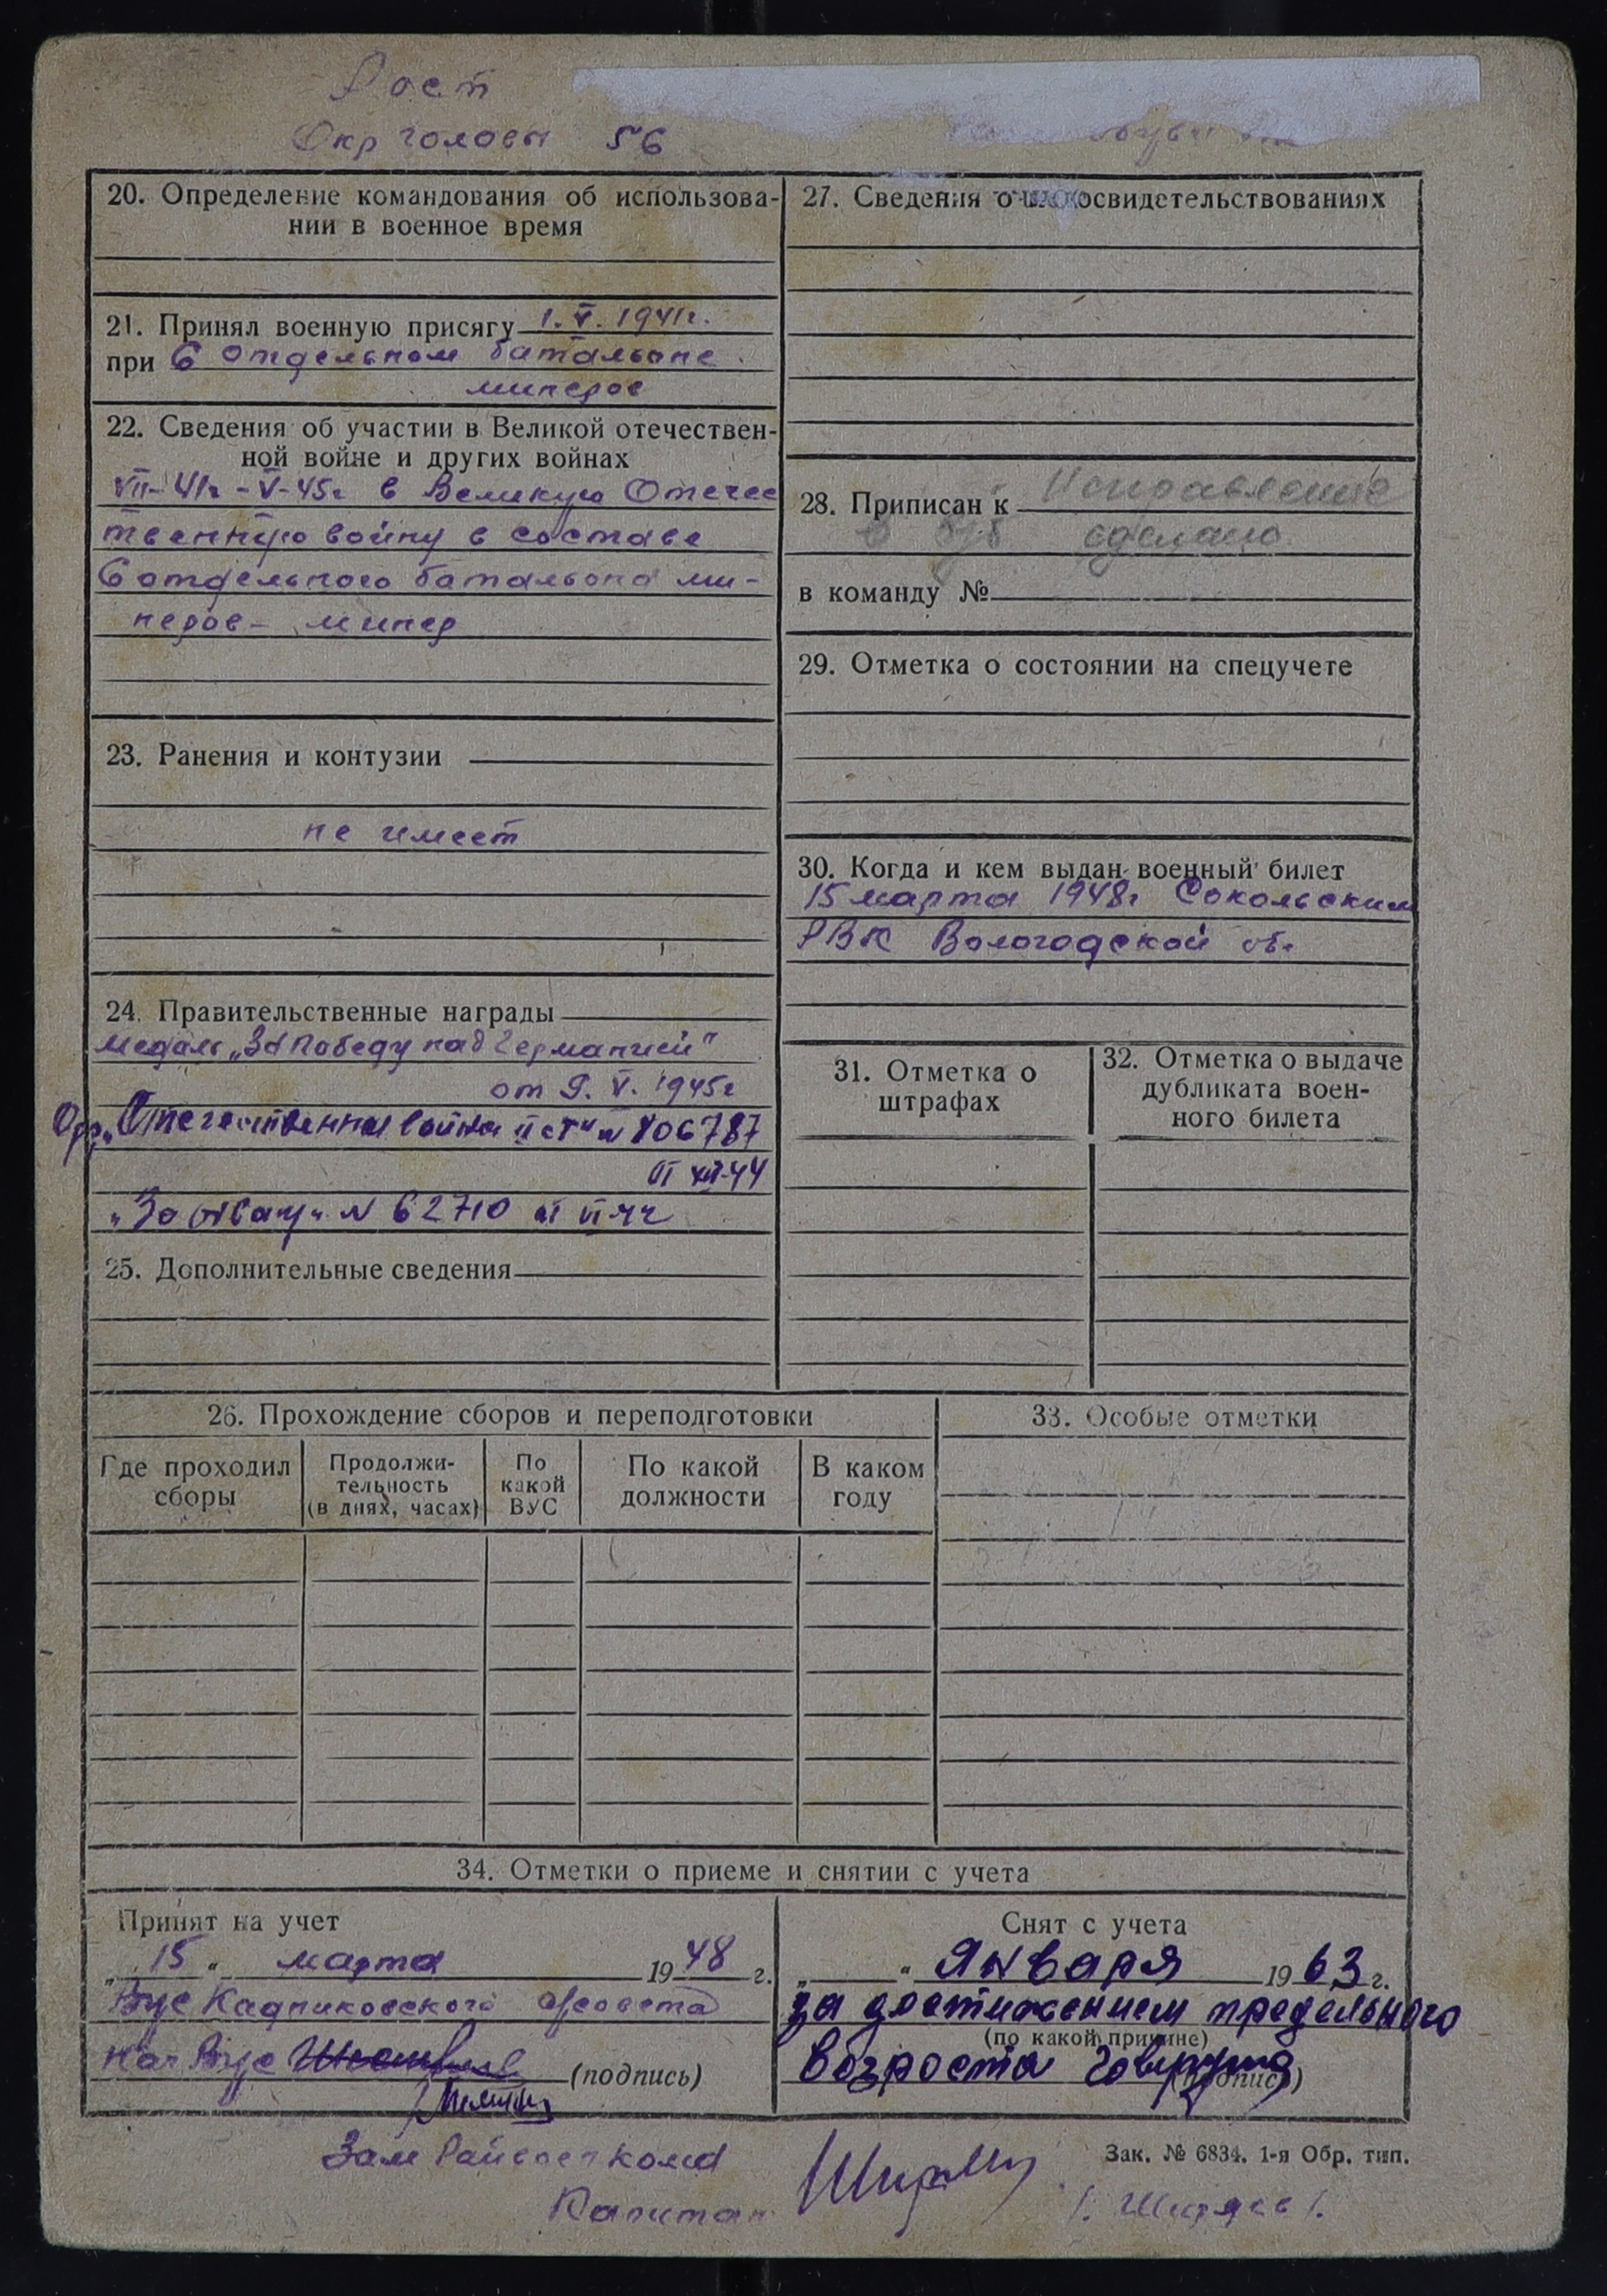 Рост
Окр головы 56
20. Определение командования об использова-
нии в военное время
21. Принял военную присягу 1.V.1941г.
при 6 отдельном батальоне
минеров
22. Сведения об участии в Великой отечествен-
ной войне и других войнах
VII-41г-V-45г в Великую Отечес
твенную войну в составе
6 отдельного батальона ми-
неров - минер
23. Ранения и контузии
не имеет
24. Правительственные награды
медаль „За Победу над Германией"
от 9.V.1945г
Орд „Отечественная война II ст" № 806787
„За отвагу" № 62710
25. Дополнительные сведения
27. Сведения о освидетельствованиях
28. Приписан к Исправление
сделано
в команду №
29. Отметка о состоянии на спецучете
30. Когда и кем выдан военный билет
15 марта 1948г Сокольским
РВК Вологодской об.
31. Отметка о
штрафах
32. Отметка о выдаче
дубликата воен-
ного билета
26. Прохождение сборов и переподготовки
Где проходил
сборы
Продолжи-
тельность
(в днях, часах)
По
какой
ВУС
По какой
должности
В каком
году
33. Особые отметки
34. Отметки о приеме и снятии с учета
Принят на учет
„15" марта 1948 г.
Вус Кадниковского
Нач Вус
(подпись)
Снят с учета
„ " Января 1963 г.
за достижением предельного
(по какой причине)
возраста
(подпись)
Зам Райвоенкома
Капитан
Зак. № 6834. 1-я Обр. тип.